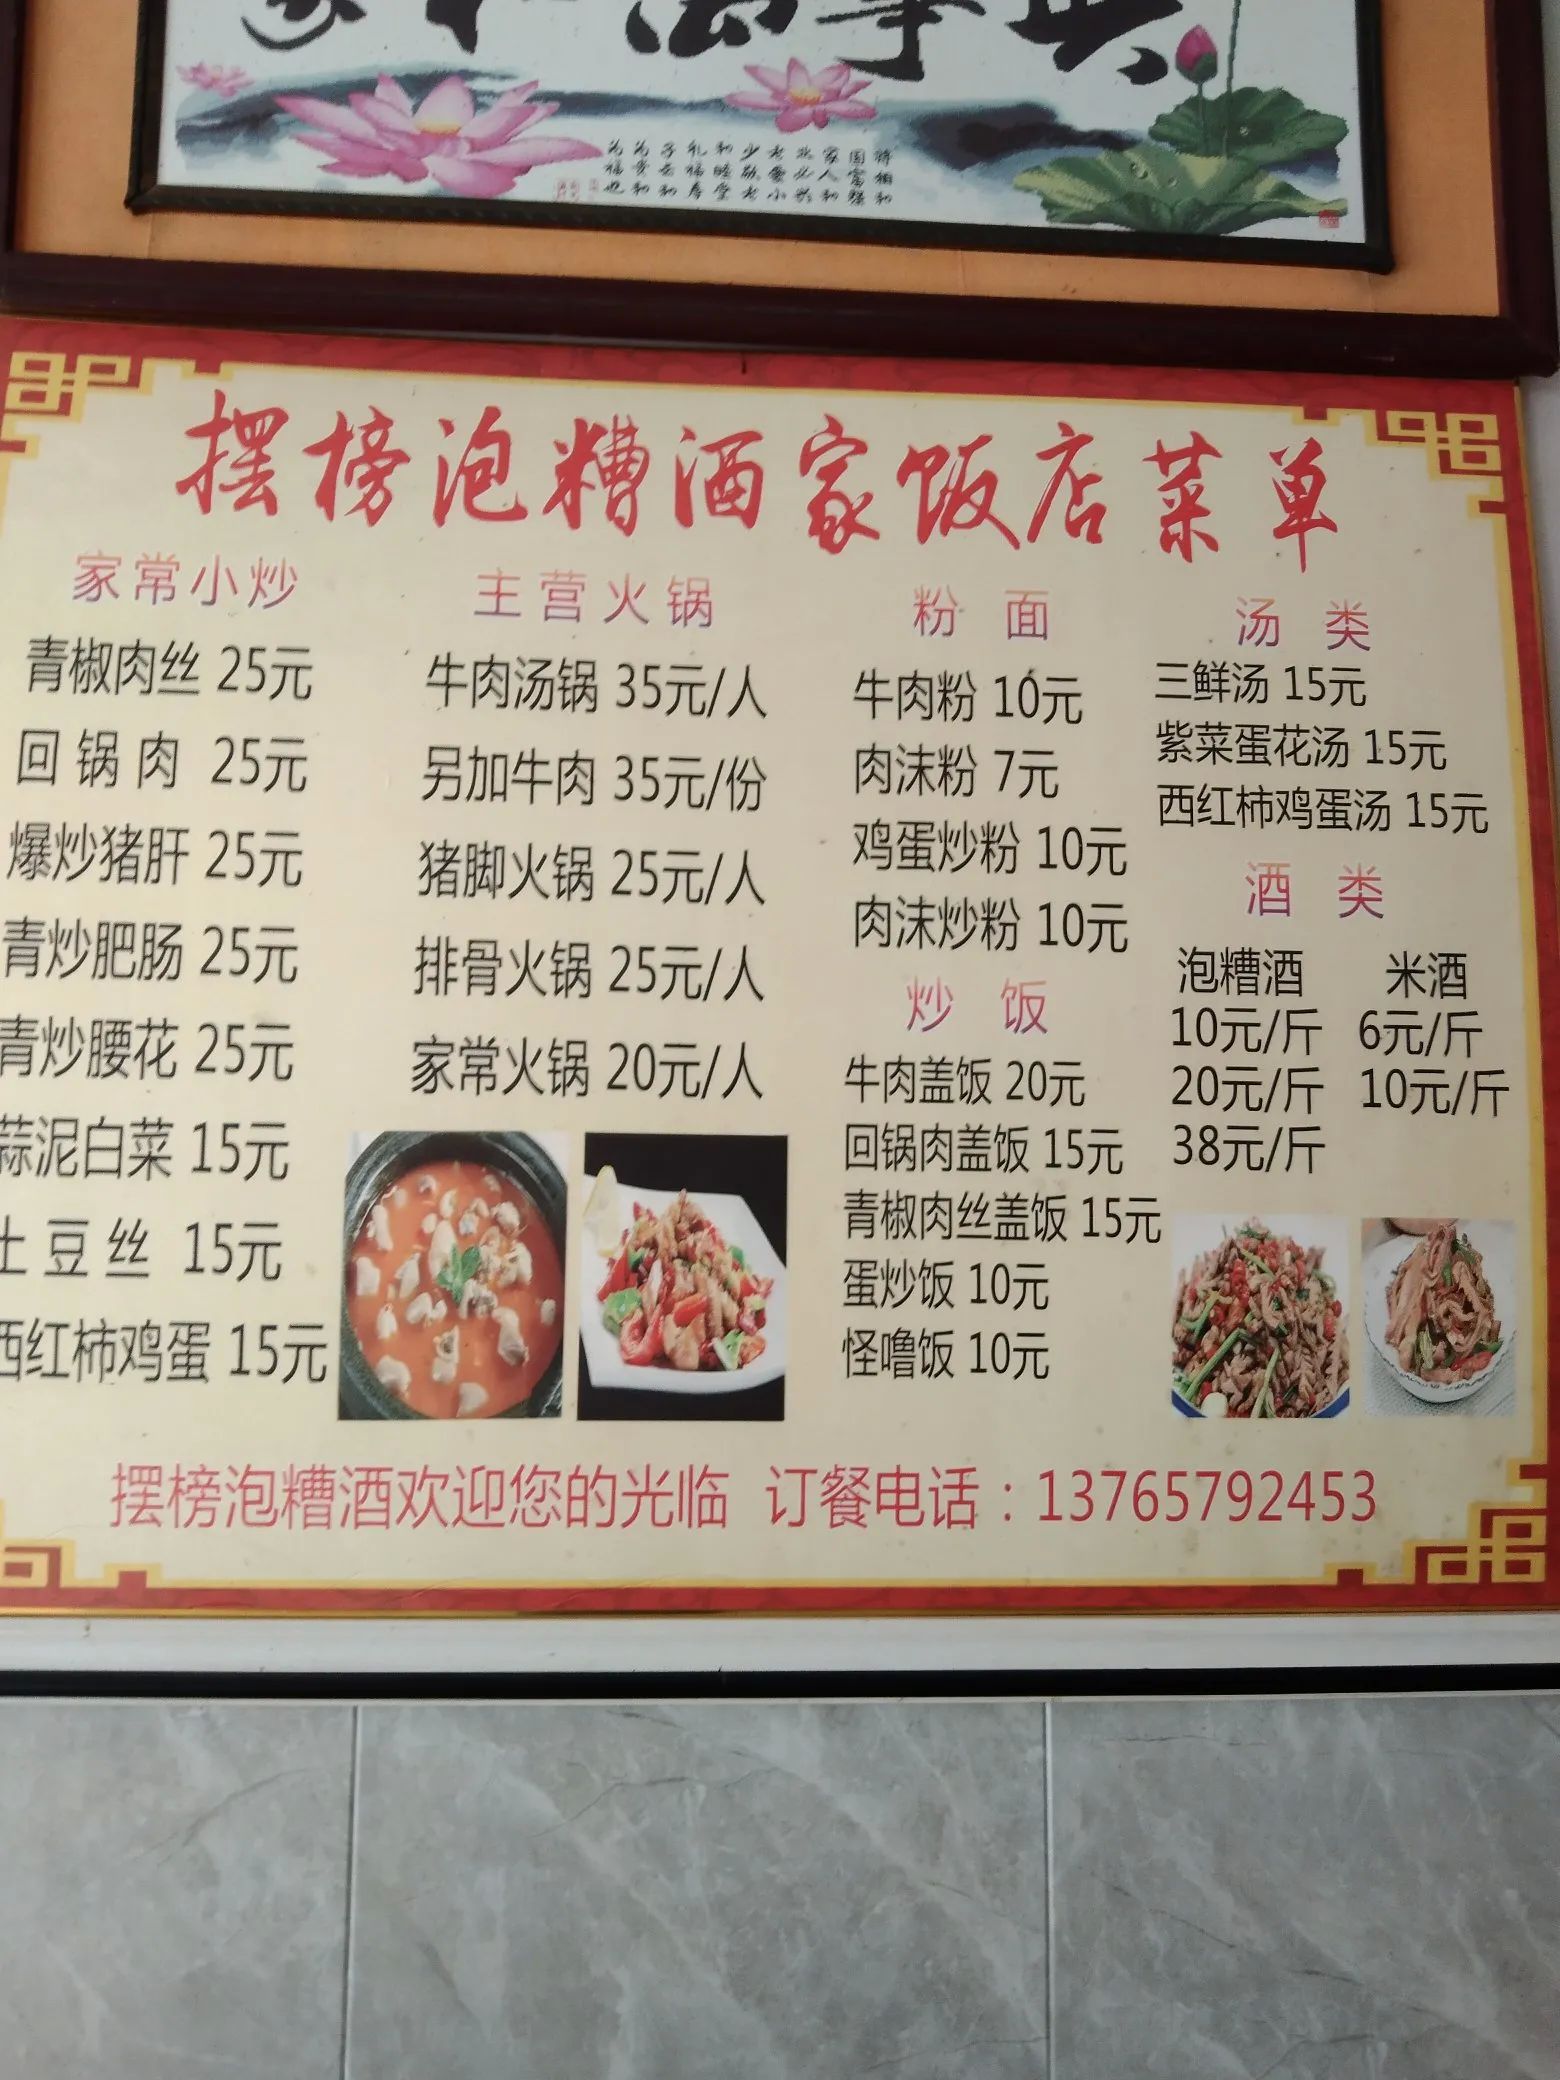 摆榜泡糟酒家饭店菜单
家常小炒
青椒肉丝 25元
回锅肉 25元
爆炒猪肝 25元
青炒肥肠 25元
青炒腰花 25元
蒜泥白菜 15元
土豆丝 15元
西红柿鸡蛋 15元
主营火锅
牛肉汤锅 35元/人
另加牛肉 35元/份
猪脚火锅 25元/人
排骨火锅 25元/人
家常火锅 20元/人
粉 面
牛肉粉 10元
肉沫粉 7元
鸡蛋炒粉 10元
肉沫炒粉 10元
炒 饭
牛肉盖饭 20元
回锅肉盖饭 15元
青椒肉丝盖饭 15元
蛋炒饭 10元
怪噜饭 10元
汤 类
三鲜汤 15元
紫菜蛋花汤 15元
西红柿鸡蛋汤 15元
酒 类
泡糟酒 米酒
10元/斤 6元/斤
20元/斤 10元/斤
38元/斤
摆榜泡糟酒欢迎您的光临 订餐电话：13765792453